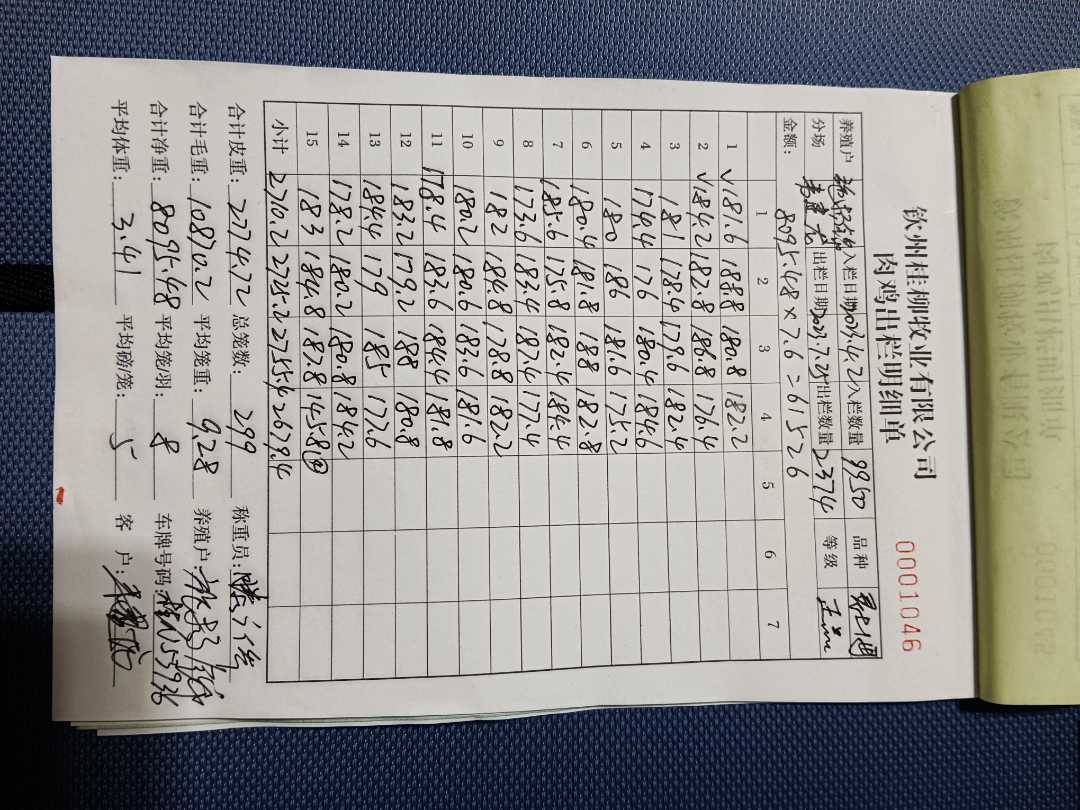 钦州桂柳牧业有限公司
肉鸡出栏明细单
0001046
养殖户 入栏日期 2023.4.2 入栏数量 9950 品种
分场 出栏日期 2023.7.25 出栏数量 2374 等级
金额: 8095.48×7.6=61526
1 2 3 4 5 6 7
1 √181.6 188.8 180.8 182.2
2 √184.2 182.8 186.8 176.4
3 181 178.4 179.6 182.4
4 174.4 176 180.4 184.6
5 180 186 181.6 175.2
6 180.4 181.8 188 182.8
7 185.6 175.8 182.4 184.4
8 173.6 183.4 187.4 177.4
9 182 184.8 178.8 182.2
10 180.2 180.6 183.6 181.6
11 178.4 183.6 184.4 181.8
12 183.2 179.2 188 180.8
13 184.4 179 185 177.6
14 178.2 180.2 180.8 184.2
15 183 184.8 187.8 145.8④
小计 2710.2 2725.2 2755.4 2679.4
合计皮重: 2774.72 总笼数: 299 称重员:
合计毛重: 10870.2 平均笼重: 9.28 养殖户:
合计净重: 8095.48 平均笼羽: 8 车牌号码:
平均体重: 3.41 平均磅笼: 5 客户: